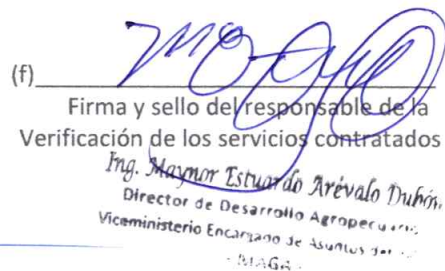 (f)
Firma y sello del responsable de la
Verificación de los servicios contratados
Ing. Maynor Estuardo Arévalo Dubón
Director de Desarrollo Agropecuario
Viceministerio Encargado de Asuntos del
- MAGA -